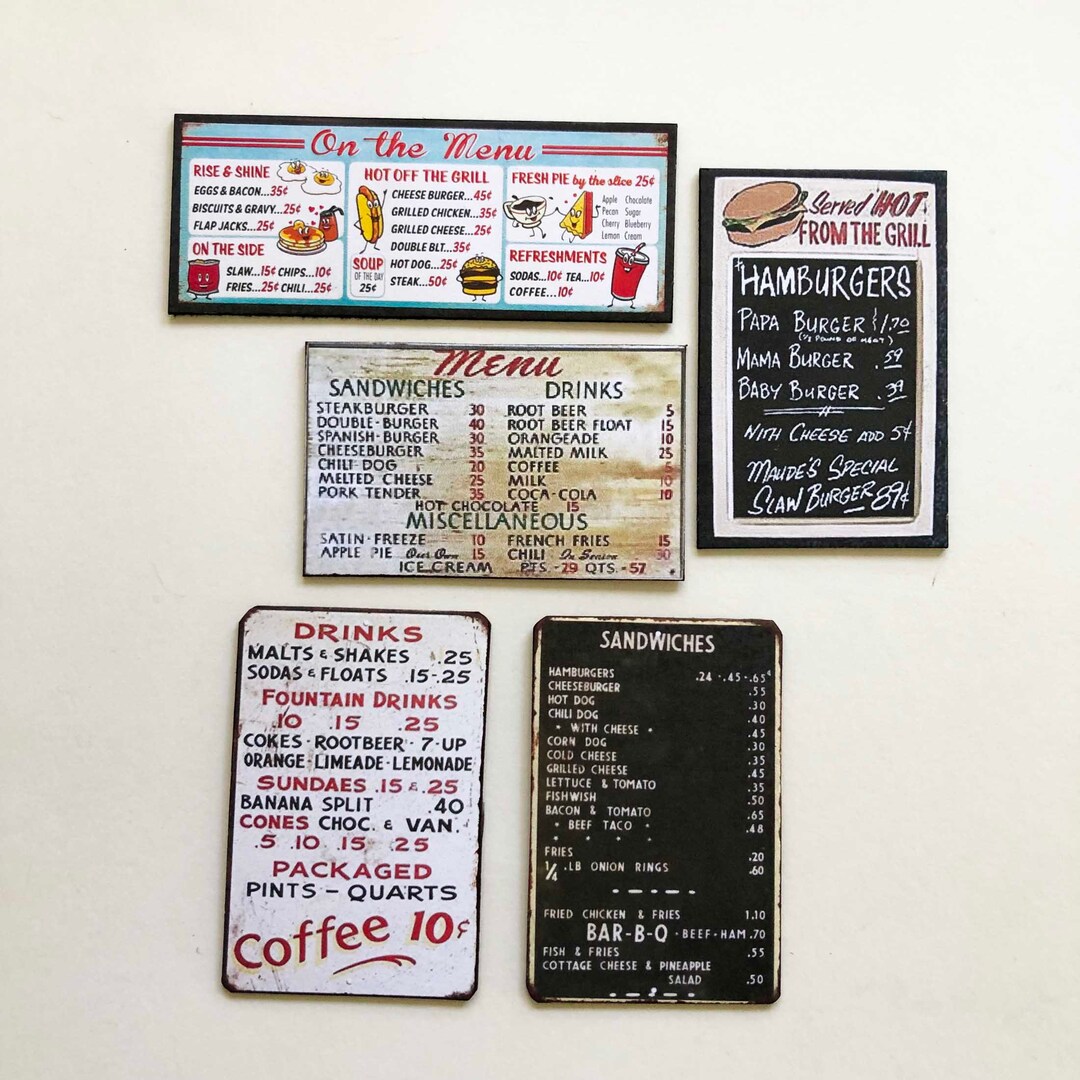 On the Menu
RISE & SHINE
EGGS & BACON...35¢
BISCUITS & GRAVY...25¢
FLAP JACKS...25¢
ON THE SIDE
SLAW...15¢ CHIPS...10¢
FRIES...25¢ CHILI...25¢
HOT OFF THE GRILL
CHEESE BURGER...45¢
GRILLED CHICKEN...35¢
GRILLED CHEESE...25¢
DOUBLE BLT...35¢
HOT DOG...25¢
STEAK...50¢
SOUP
OF THE DAY
25¢
FRESH PIE by the slice 25¢
Apple Chocolate
Pecan Sugar
Cherry Blueberry
Lemon Cream
REFRESHMENTS
SODAS...10¢ TEA...10¢
COFFEE...10¢
Served HOT
FROM THE GRILL
HAMBURGERS
PAPA BURGER 1.70
(1/2 POUND OF MEAT)
MAMA BURGER .59
BABY BURGER .39
WITH CHEESE ADD 5¢
MAUDE'S SPECIAL
SLAW BURGER 89¢
Menu
SANDWICHES
STEAKBURGER 30
DOUBLE-BURGER 40
SPANISH-BURGER 30
CHEESEBURGER 35
CHILI DOG 20
MELTED CHEESE 25
PORK TENDER 35
DRINKS
ROOT BEER 5
ROOT BEER FLOAT 15
ORANGEADE 10
MALTED MILK 25
COFFEE 5
MILK 10
COCA-COLA 10
HOT CHOCOLATE 15
MISCELLANEOUS
SATIN-FREEZE 10 FRENCH FRIES 15
APPLE PIE Our Own 15 CHILI In Season 30
ICE CREAM PTS.-29 QTS.-57
DRINKS
MALTS & SHAKES .25
SODAS & FLOATS .15-.25
FOUNTAIN DRINKS
.10 .15 .25
COKES · ROOTBEER · 7-UP
ORANGE · LIMEADE · LEMONADE
SUNDAES .15 & .25
BANANA SPLIT .40
CONES CHOC. & VAN.
.5 .10 .15 .25
PACKAGED
PINTS - QUARTS
Coffee 10¢
SANDWICHES
HAMBURGERS .24 -.45-.65¢
CHEESEBURGER .55
HOT DOG .30
CHILI DOG .40
• WITH CHEESE • .45
CORN DOG .30
COLD CHEESE .35
GRILLED CHEESE .45
LETTUCE & TOMATO .35
FISHWISH .50
BACON & TOMATO .65
• BEEF TACO • .48
FRIES .20
1/4 .LB ONION RINGS .60
FRIED CHICKEN & FRIES 1.10
BAR-B-Q · BEEF-HAM .70
FISH & FRIES .55
COTTAGE CHEESE & PINEAPPLE
SALAD .50